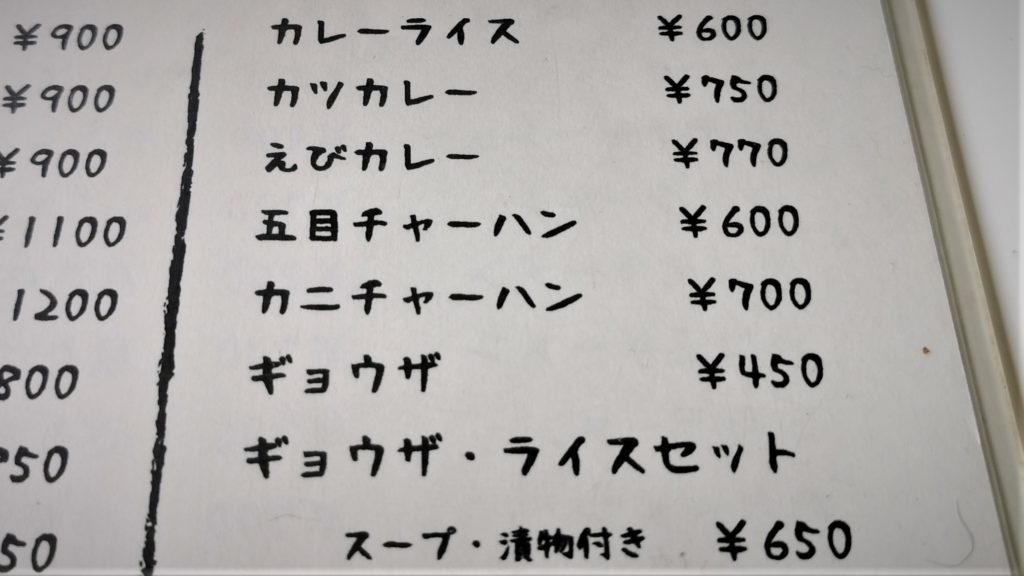 ¥900
¥900
¥900
¥1100
1200
800
50
50
カレーライス ¥600
カツカレー ¥750
えびカレー ¥770
五目チャーハン ¥600
カニチャーハン ¥700
ギョウザ ¥450
ギョウザ・ライスセット
スープ・漬物付き ¥650